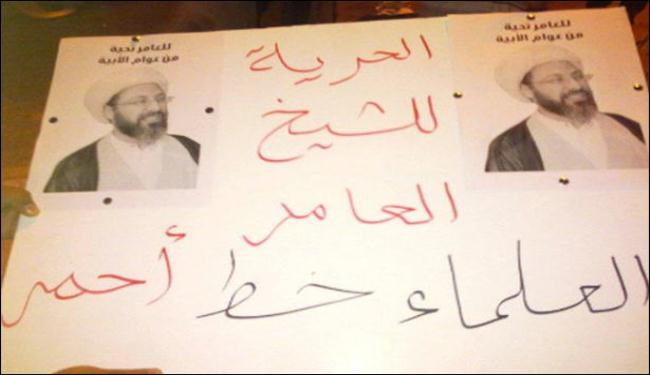 للعامر تحية
من عوام الأبية
الحرية
للشيخ
العامر
العلماء خط أحمر
للعامر تحية
من عوام الأبية